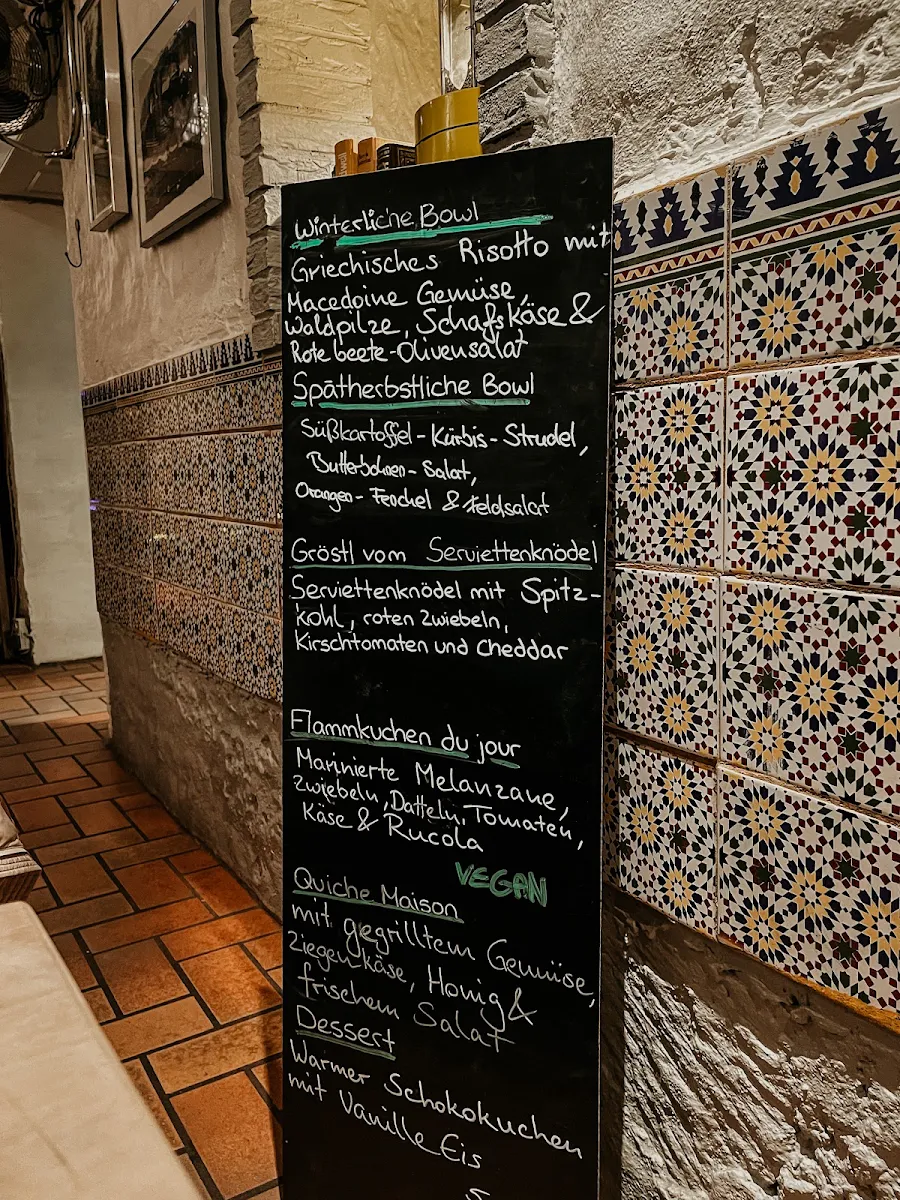 Winterliche Bowl
Griechisches Risotto mit
Macedoine Gemüse,
Waldpilze, Schafskäse &
Rote beete-Olivensalat
Spätherbstliche Bowl
Süßkartoffel-Kürbis-Strudel,
Butterbohnen-Salat,
Orangen-Fenchel & Feldsalat
Gröstl vom Serviettenknödel
Serviettenknödel mit Spitz-
kohl, roten Zwiebeln,
Kirschtomaten und Cheddar
Flammkuchen du jour
Marinierte Melanzane,
Zwiebeln, Datteln, Tomaten,
Käse & Rucola
VEGAN
Quiche Maison
mit gegrilltem Gemüse,
Ziegenkäse, Honig &
frischem Salat
Dessert
Warmer Schokokuchen
mit Vanille Eis